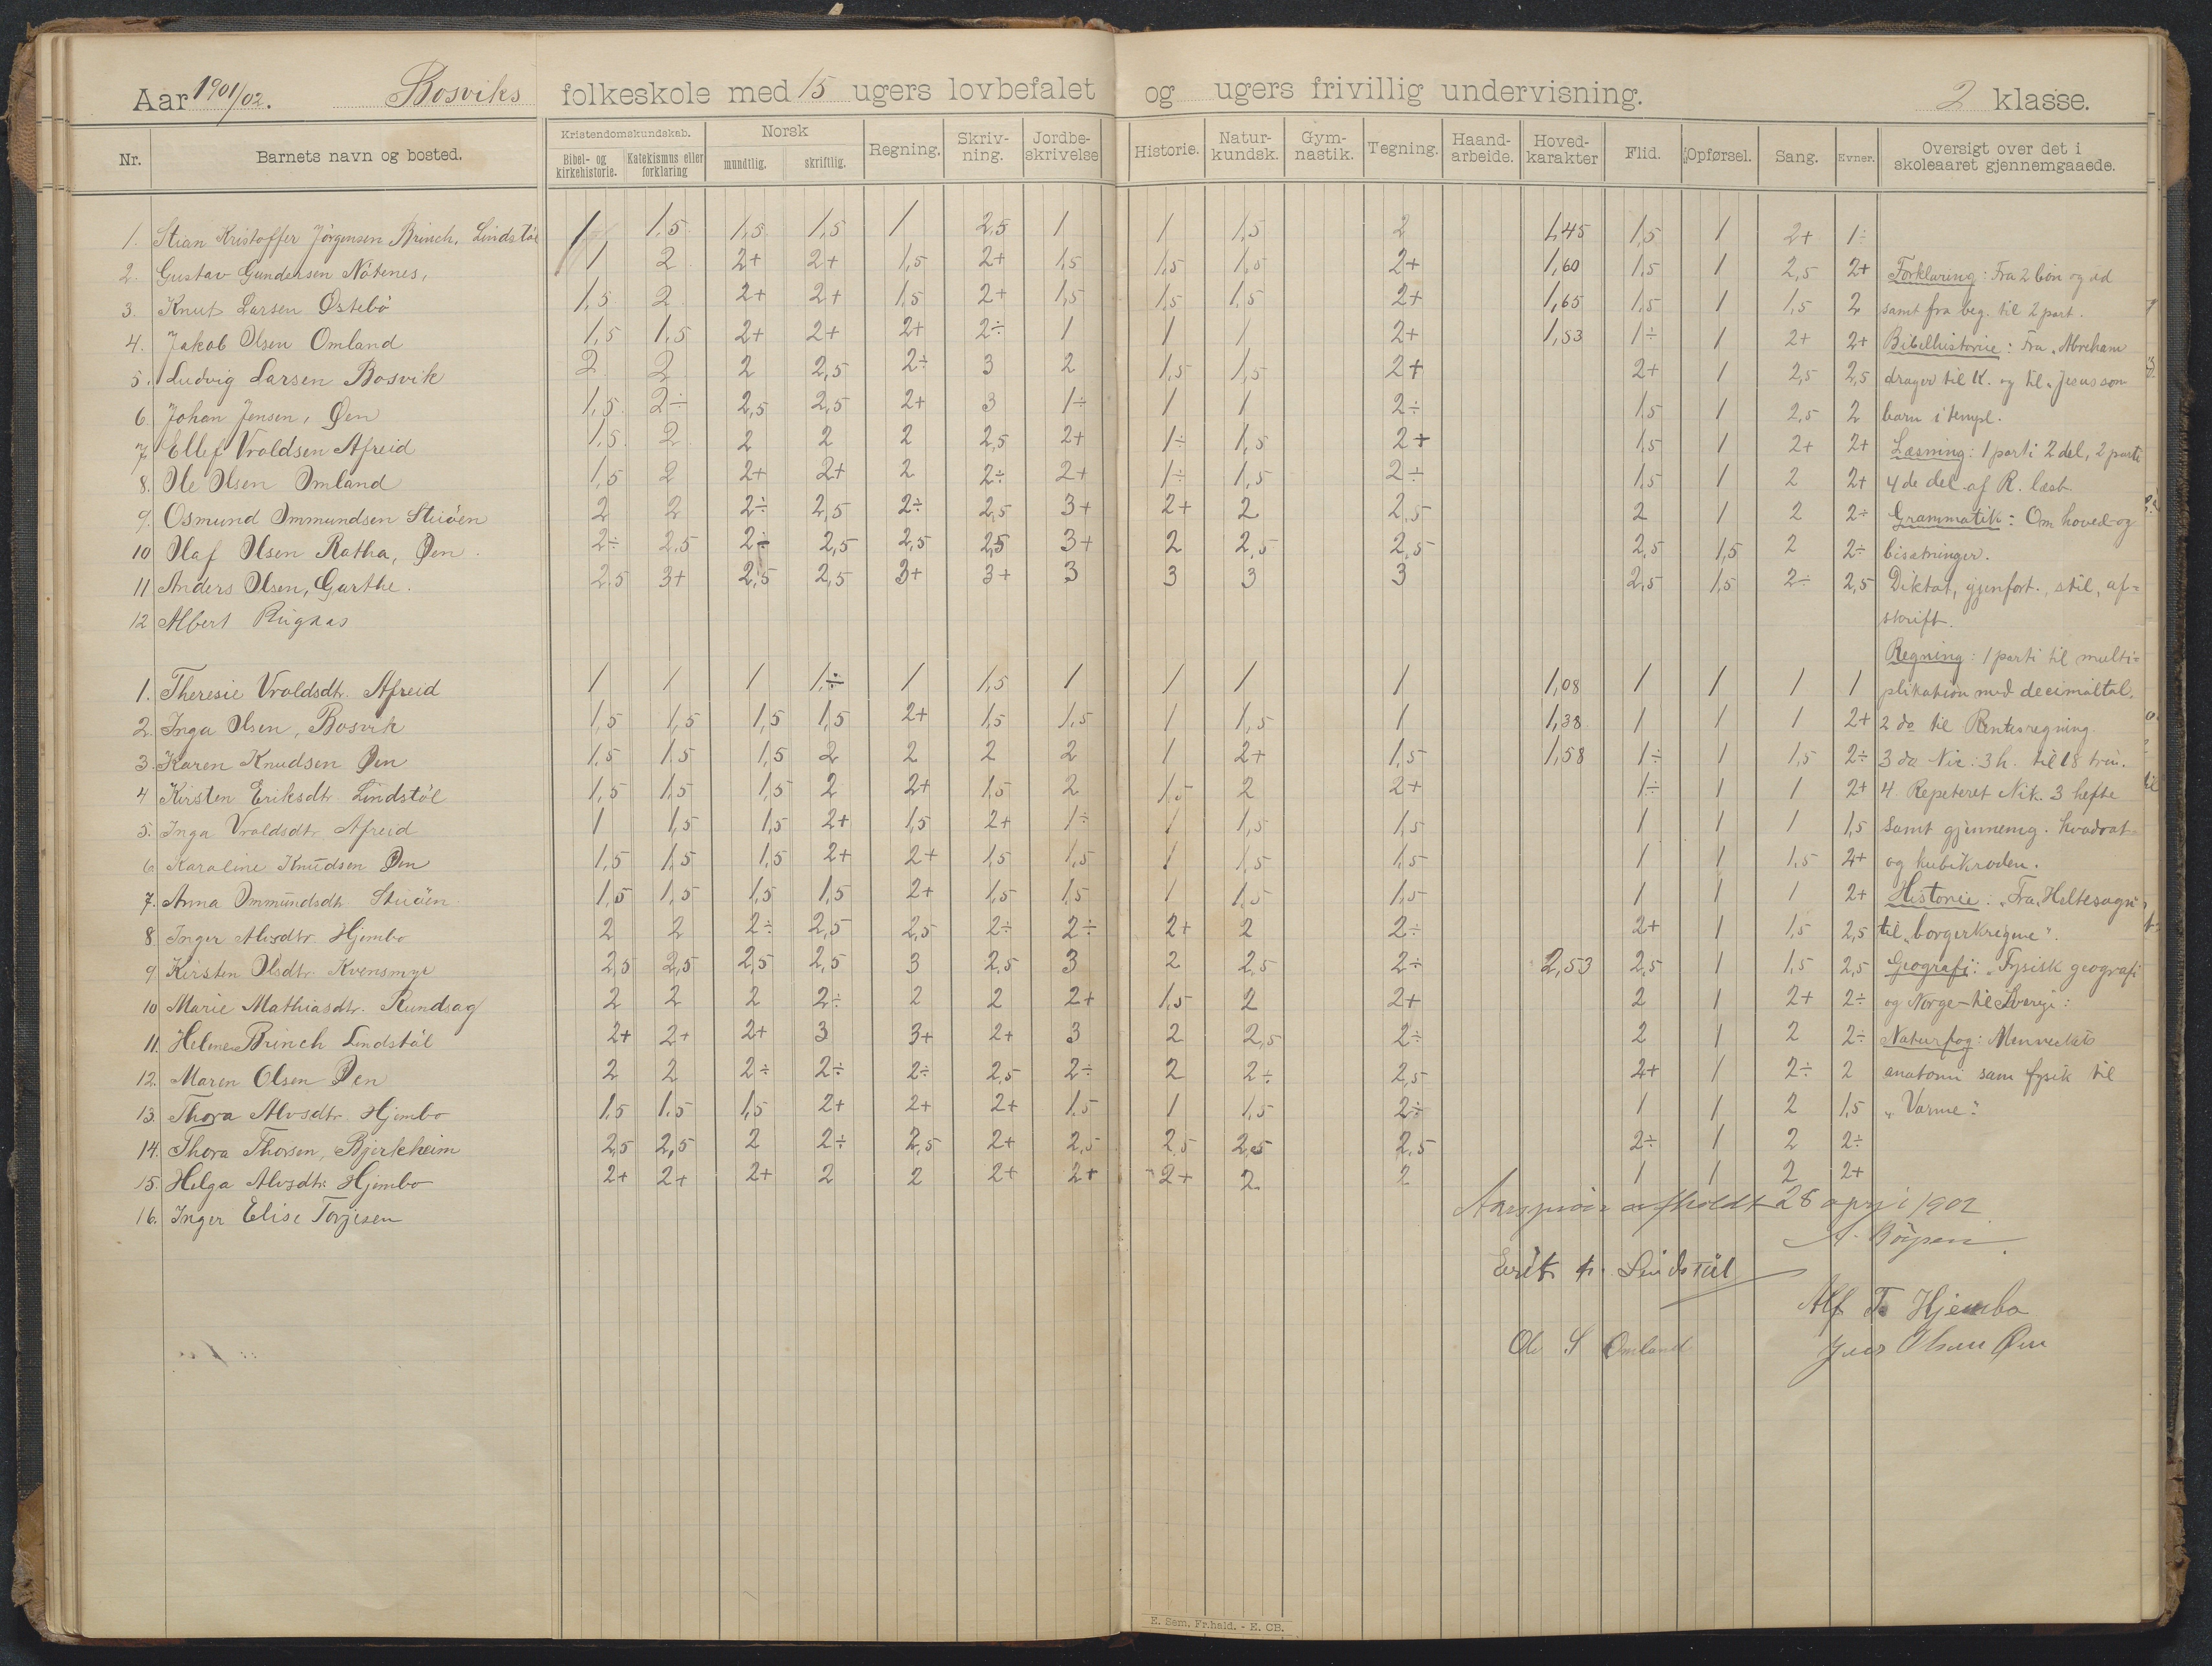 Aar 1901/02. Bosviks folkeskole med 15 ugers lovbefalet og ugers frivillig undervisning. 2 klasse.
Nr. Barnets navn og bosted. Kristendomskundskab. Bibel- og kirkehistorie. Katekismus eller forklaring Norsk mundtlig. skriftlig. Regning. Skriv-ning. Jordbe-skrivelse Historie. Natur-kundsk. Gym-nastik. Tegning. Haand-arbeide. Hoved-karakter Flid. Opførsel. Sang. Evner. Oversigt over det i skoleaaret gjennemgaaede.
1. Stian Kristoffer Jörgensen Brinch, Lindstöl 1 1,5 1,5 1,5 1 2,5 1 1 1,5 2 1,45 1,5 1 2+ 1÷
2. Gustav Gundersen Nötenes, 1 2 2+ 2+ 1,5 2+ 1,5 1,5 1,5 2+ 1,60 1,5 1 2,5 2+ Forklaring: Fra 2 bön og ud
3. Knut Larsen Östebö 1,5 2 2+ 2+ 1,5 2+ 1,5 1,5 1,5 2+ 1,65 1,5 1 1,5 2 samt fra beg. til 2 part.
4. Jakob Olsen Omland 1,5 1,5 2+ 2+ 2+ 2÷ 1 1 1 2+ 1,53 1÷ 1 2+ 2+ Bibelhistorie: Fra „Abraham
5. Ludvig Larsen Bosvik 2 2 2 2,5 2÷ 3 2 1,5 1,5 2+ 2+ 1 2,5 2,5 drager til K. og til „Jesus som
6 Johan Jensen, Øen 1,5 2÷ 2,5 2,5 2+ 3 1÷ 1 1 2÷ 1,5 1 2,5 2 barn i templ.
7 Ellef Vroldsen Afreid 1,5 2 2 2 2 2,5 2+ 1÷ 1,5 2+ 1,5 1 2+ 2+ Læsning: 1 parti 2 del, 2 parti
8. Ole Olsen Omland 1,5 2 2+ 2+ 2 2÷ 2+ 1÷ 1,5 2÷ 1,5 1 2 2+ 4de del af R. læsb.
9. Osmund Ommundsen Stiöen 2 2 2÷ 2,5 2÷ 2,5 3+ 2+ 2 2,5 2 1 2 2÷ Grammatik: Om hoved-og
10 Olaf Olsen Ratha, Øen. 2÷ 2,5 2÷ 2,5 2,5 2,5 3+ 2 2,5 2,5 2,5 1,5 2 2÷ bisætninger.
11 Anders Olsen, Garthe. 2,5 3+ 2,5 2,5 3+ 3+ 3 3 3 3 2,5 1,5 2÷ 2,5 Diktat, gjenfort., stil, af=
12 Albert Rugaas skrift.
Regning: 1 parti til multi=
1. Theresie Vroldsdtr. Afreid 1 1 1 1,÷ 1 1,5 1 1 1 1 1,08 1 1 1 1 plikation med decimaltal.
2. Inga Olsen, Bosvik 1,5 1,5 1,5 1,5 2+ 1,5 1,5 1 1,5 1 1,38 1 1 1 2+ 2 do til Rentesregning.
3. Karen Knudsen Øen 1,5 1,5 1,5 2 2 2 2 1 2+ 1,5 1,58 1÷ 1 1,5 2÷ 3 do Nic: 3 h. til 18 trin.
4 Kirsten Eriksdtr. Lindstöl 1,5 1,5 1,5 2 2+ 1,5 2 1,5 2 2+ 1÷ 1 1 2+ 4. Repeteret Nik. 3 hefte
5. Inga Vroldsdtr. Afreid 1 1,5 1,5 2+ 1,5 2+ 1÷ 1 1,5 1,5 1 1 1 1,5 samt gjennemg. kvadrat-
6 Karoline Knudsen Øen 1,5 1,5 1,5 2+ 2+ 1,5 1,5 1 1,5 1,5 1 1 1,5 2+ og kubikroden.
7. Anna Ommundsdtr. Stiöen 1,5 1,5 1,5 1,5 2+ 1,5 1,5 1 1,5 1,5 1 1 1 2+ Historie: „Fra Heltesagn
8. Inger Alvsdtr. Hjembo 2 2 2÷ 2,5 2,5 2÷ 2÷ 2+ 2 2÷ 2+ 1 1,5 2,5 til „borgerkrigene".
9 Kirsten Olsdtr. Kvensmyr 2,5 2,5 2,5 2,5 3 2,5 3 2 2,5 2÷ 2,53 2,5 1 1,5 2,5 Geografi: „Fysisk geografi
10 Marie Mathiasdtr. Rundsag 2 2 2 2÷ 2 2 2+ 1,5 2 2+ 2 1 2+ 2÷ og Norge-til Sverge:
11. Helene Brinch Lindstöl 2+ 2+ 2+ 3 3+ 2+ 3 2 2,5 2÷ 2 1 2 2÷ Naturfag: Menneskets
12. Maren Olsen Øen 2 2 2÷ 2÷ 2÷ 2,5 2÷ 2 2÷ 2,5 2+ 1 2÷ 2 anatomi sam fysik til
13. Thora Alvsdtr. Hjembo 1,5 1,5 1,5 2+ 2+ 2+ 1,5 1 1,5 2÷ 1 1 2 1,5 „Varme".
14. Thora Thorsen, Bjerkheim 2,5 2,5 2 2÷ 2,5 2+ 2,5 2,5 2,5 2,5 2÷ 1 2 2÷
15. Helga Alvsdtr. Hjembo 2+ 2+ 2+ 2 2 2+ 2+ 2+ 2 2 1 1 2 2+
16. Inger Elise Torjesen
Aarspröve afholdt 28 april 1902
Erik Lindstöl
Alf T. Hjembo
Ole S Omland
Jens Olsen Øen
E. Sem, Fr.hald. - E. CB.